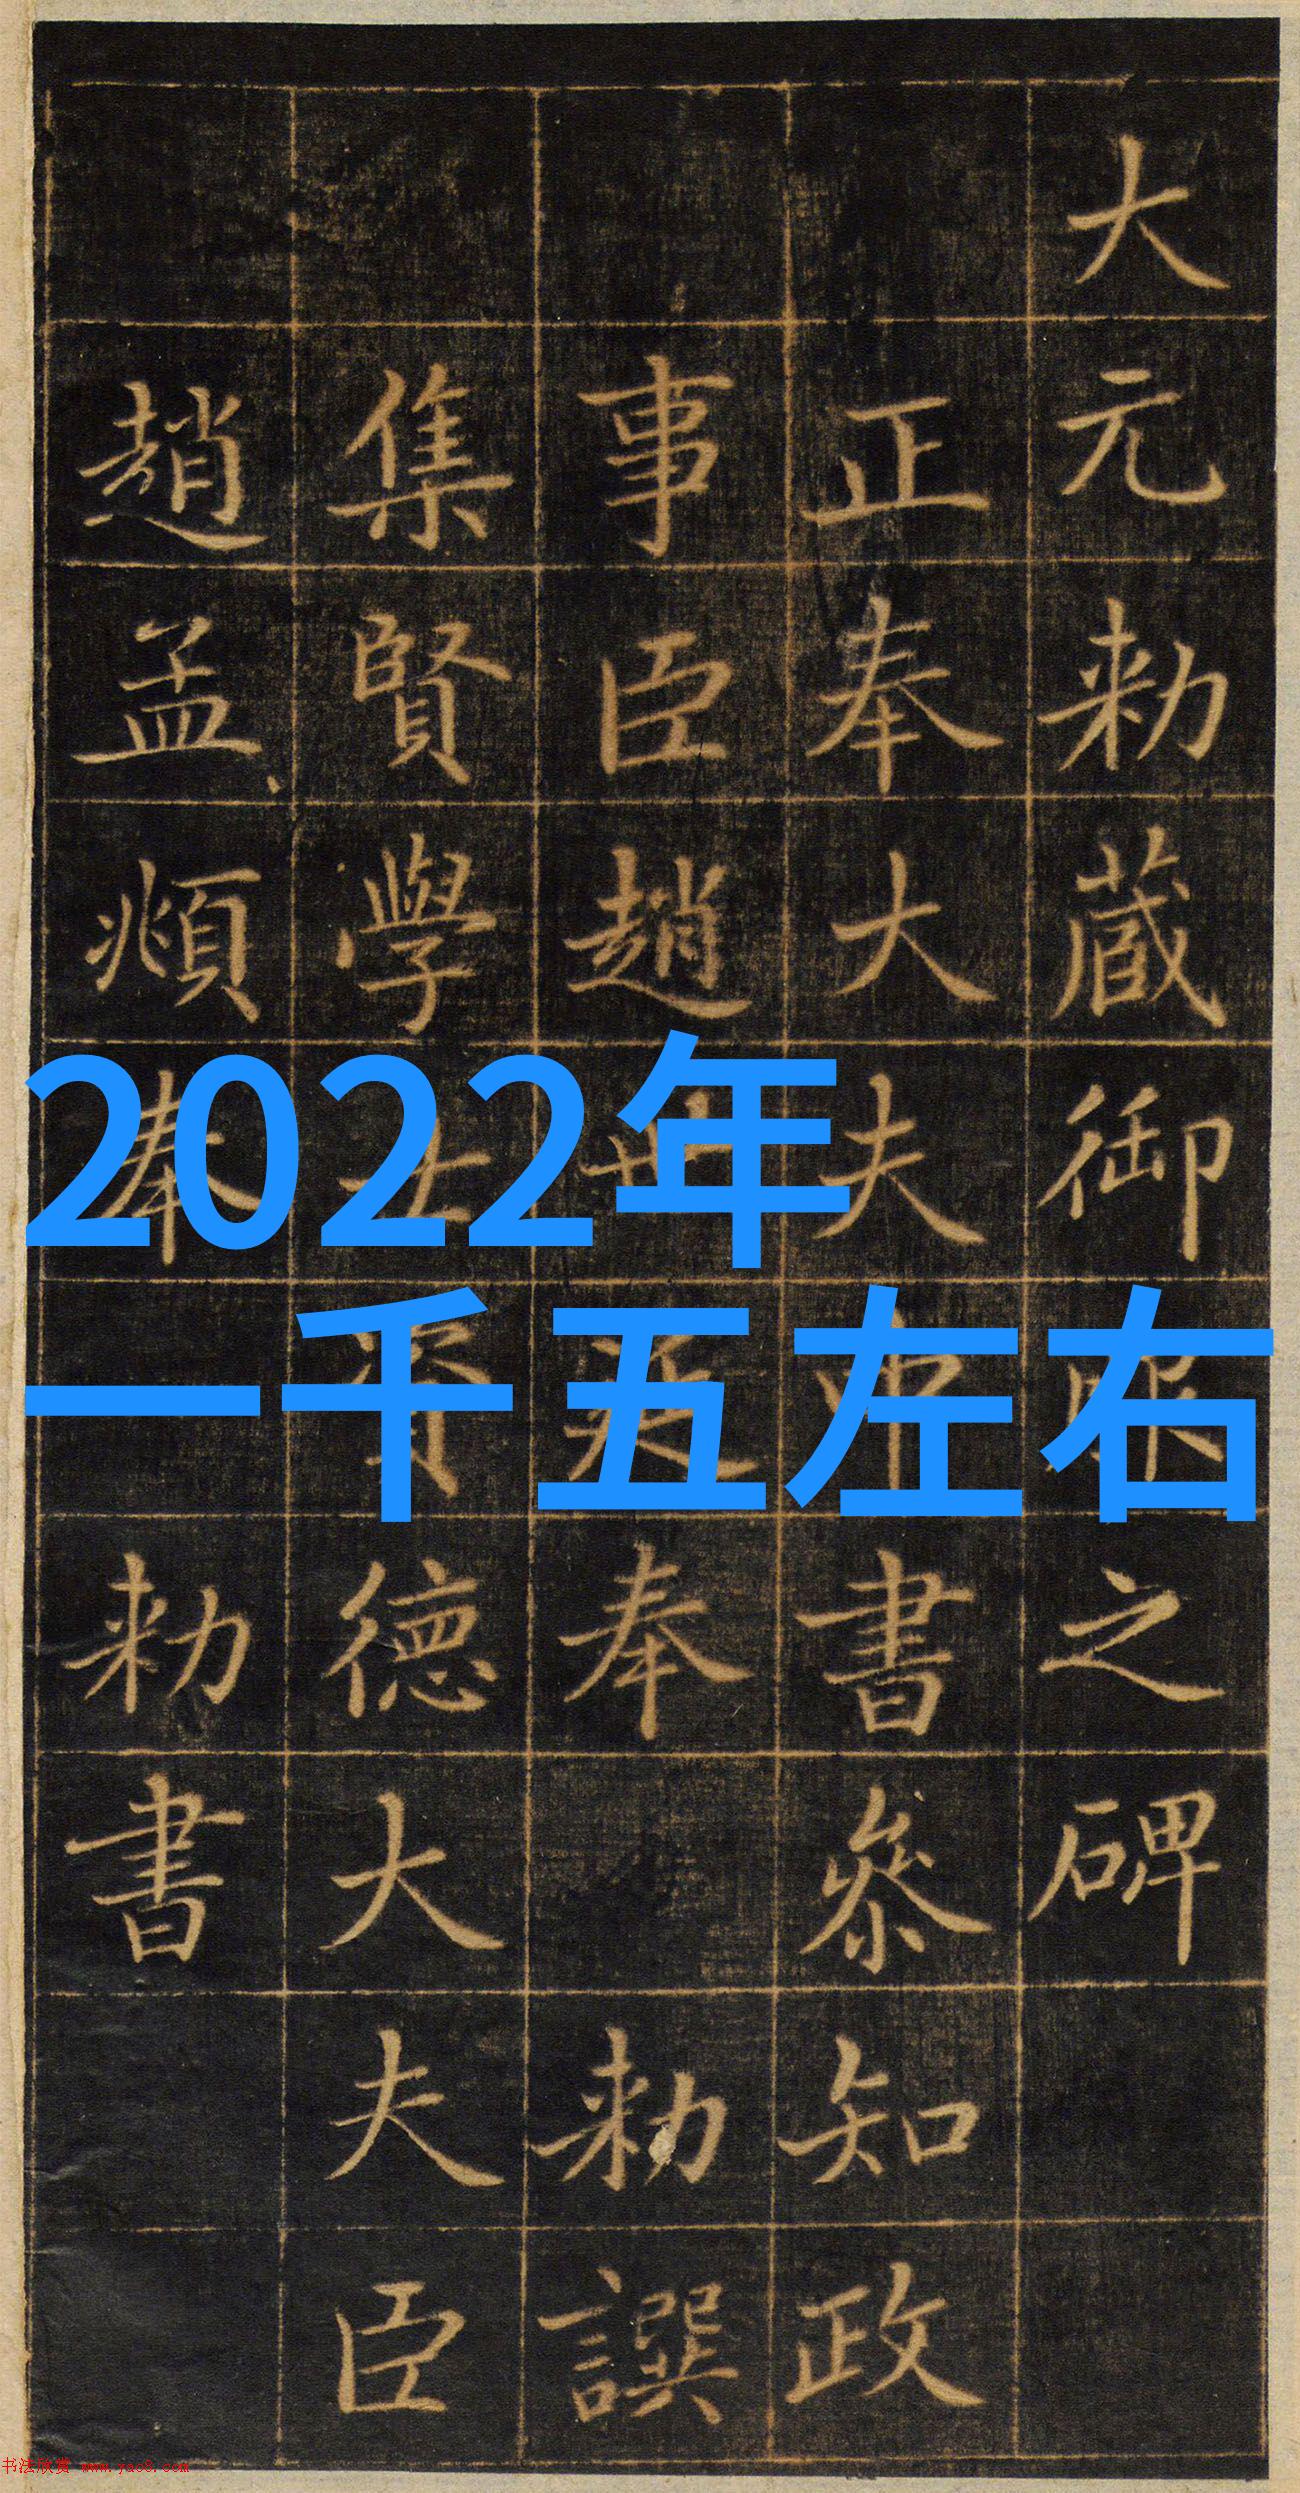 大元勑藏御服之碑
正奉大夫中書參知政
事臣趙世延奉勑譔
集賢學士資德大夫臣
趙孟頫奉勑書
2022年
一千五左右
书法欣赏 www.yac8.com